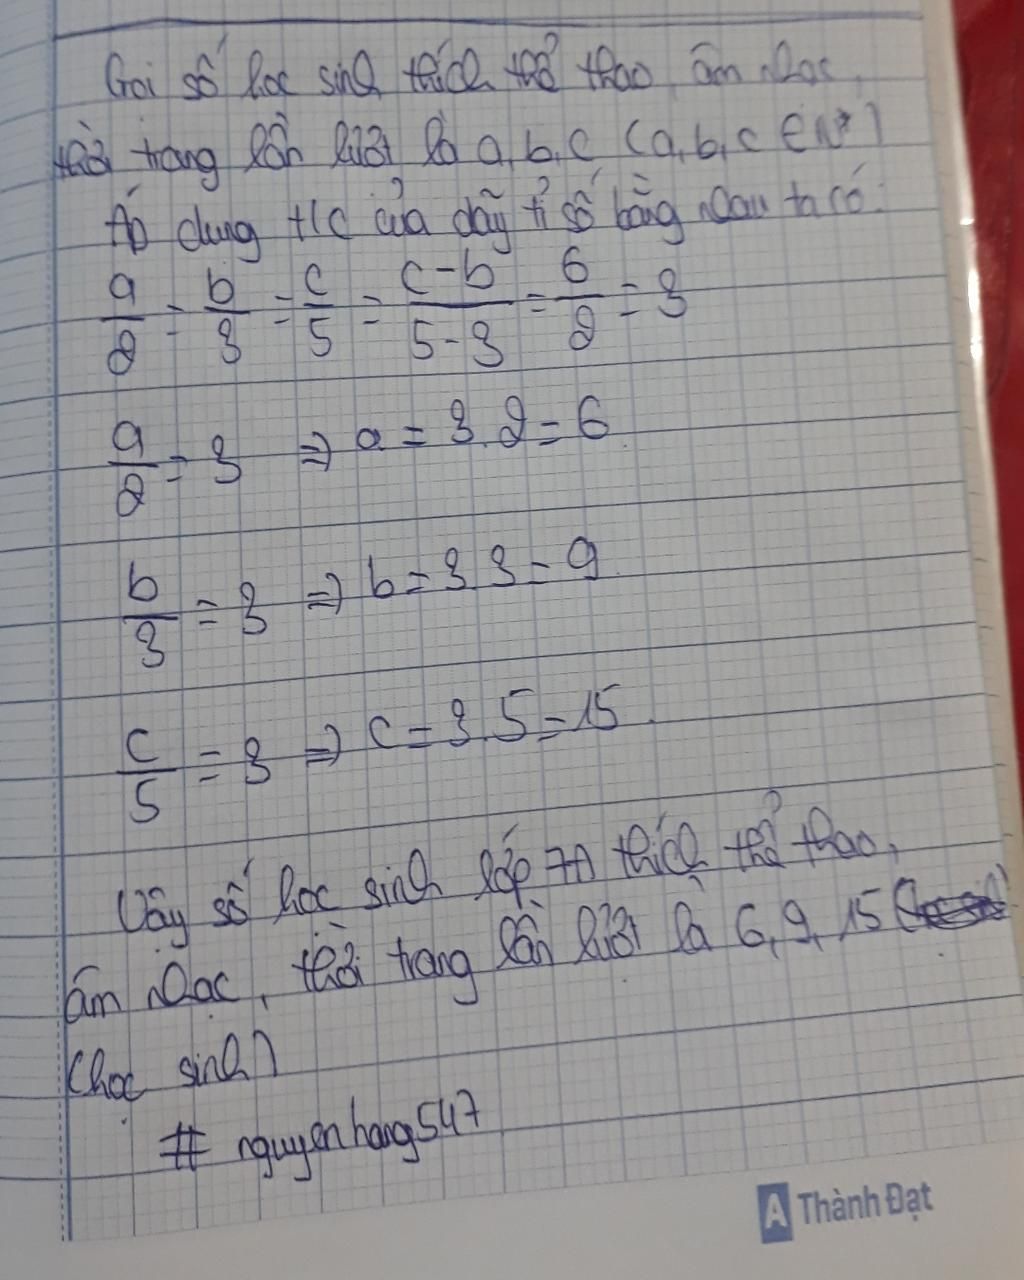 Gọi số học sinh thích thể thao, âm nhạc,
thời trang lần lượt là a, b, c (a, b, c ∈ N*)
Áp dụng t/c của dãy tỉ số bằng nhau ta có:
a/2 = b/3 = c/5 = c-b/5-3 = 6/2 = 3
a/2 = 3 => a = 3.2 = 6
b/3 = 3 => b = 3.3 = 9
c/5 = 3 => c = 3.5 = 15.
Vậy số học sinh lớp 7A thích thể thao,
âm nhạc, thời trang lần lượt là 6, 9, 15
(học sinh)
# nguyenhang547
A Thành Đạt